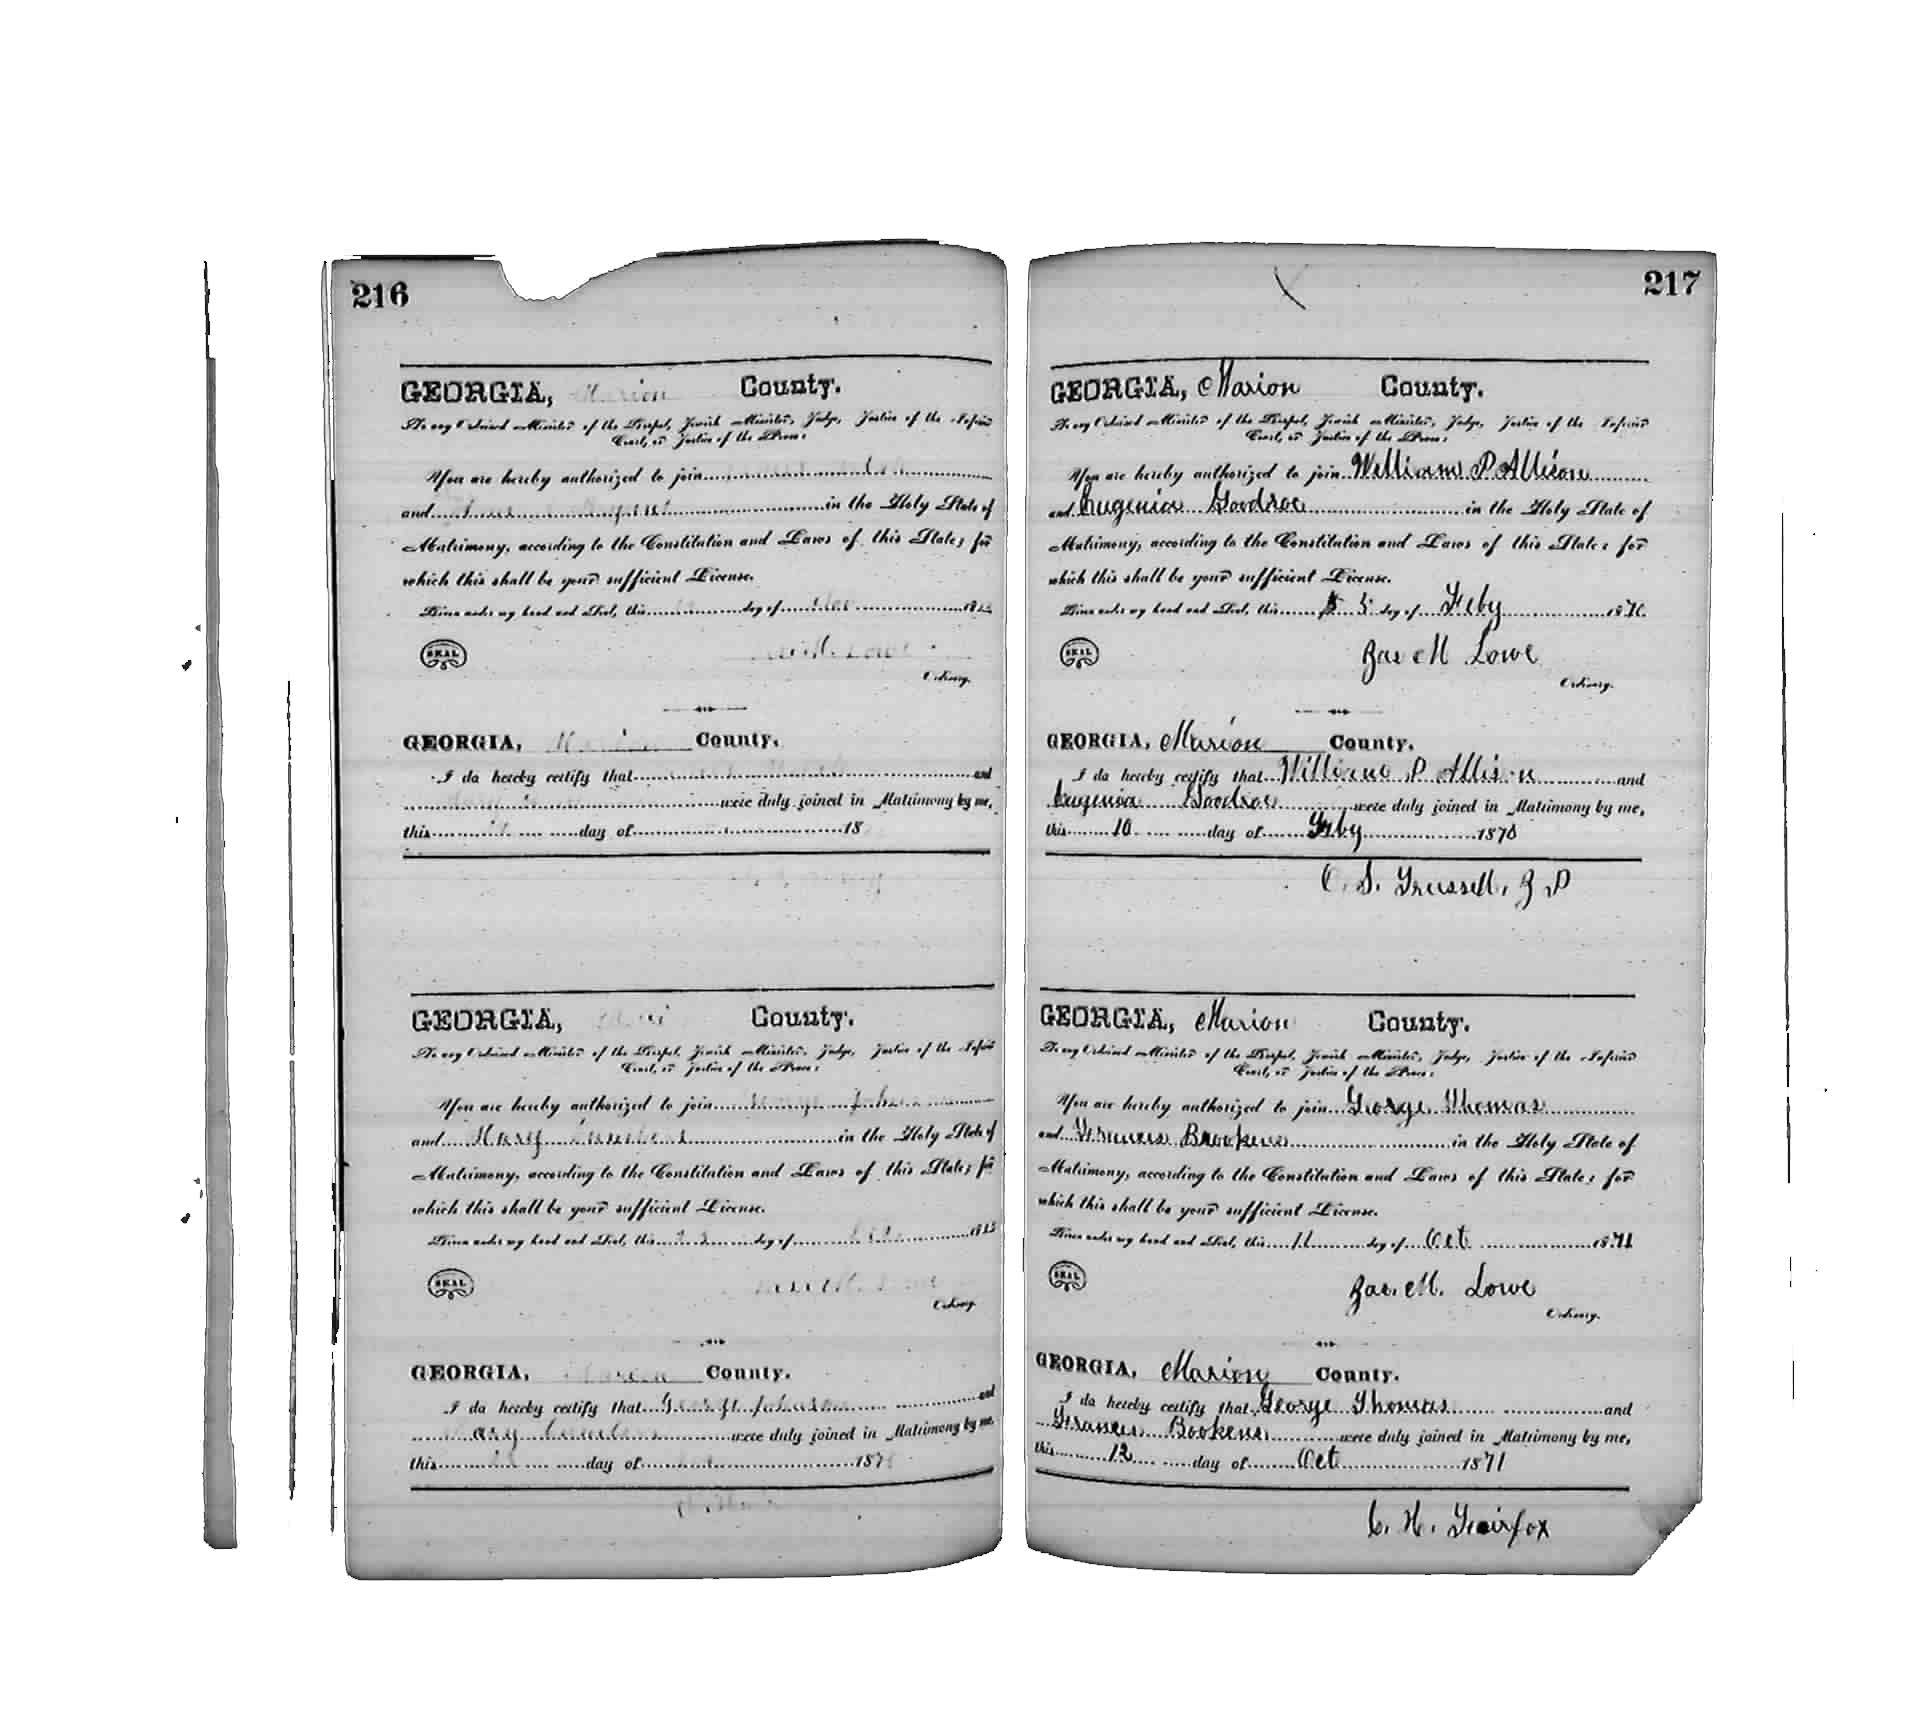 216
GEORGIA, Marion County.
To any Ordained Minister of the Gospel, Jewish Minister, Judge, Justice of the Inferior
Court, or Justice of the Peace:
You are hereby authorized to join
and in the Holy State of
Matrimony, according to the Constitution and Laws of this State; for
which this shall be your sufficient License.
Given under my hand and Seal, this day of 18
SEAL
M. Lowe
Ordinary.
GEORGIA, Marion County.
I do hereby certify that and
were duly joined in Matrimony by me,
this day of 18
GEORGIA, County.
To any Ordained Minister of the Gospel, Jewish Minister, Judge, Justice of the Inferior
Court, or Justice of the Peace:
You are hereby authorized to join George
and Mary in the Holy State of
Matrimony, according to the Constitution and Laws of this State; for
which this shall be your sufficient License.
Given under my hand and Seal, this day of 18
SEAL
Ordinary.
GEORGIA, Marion County.
I do hereby certify that George Johnson and
Mary were duly joined in Matrimony by me,
this day of 187
217
GEORGIA, Marion County.
To any Ordained Minister of the Gospel, Jewish Minister, Judge, Justice of the Inferior
Court, or Justice of the Peace:
You are hereby authorized to join William P Allison
and Eugenia Goodroe in the Holy State of
Matrimony, according to the Constitution and Laws of this State; for
which this shall be your sufficient License.
Given under my hand and Seal, this 5 day of Feby 187
SEAL
Jas M Lowe
Ordinary.
GEORGIA, Marion County.
I do hereby certify that William P Allison and
Eugenia Goodroe were duly joined in Matrimony by me,
this 10 day of Feby 1870
C. S. Trussell, J P
GEORGIA, Marion County.
To any Ordained Minister of the Gospel, Jewish Minister, Judge, Justice of the Inferior
Court, or Justice of the Peace:
You are hereby authorized to join George Thomas
and Frances Brookens in the Holy State of
Matrimony, according to the Constitution and Laws of this State; for
which this shall be your sufficient License.
Given under my hand and Seal, this 11 day of Oct 1871
SEAL
Jas. M. Lowe
Ordinary.
GEORGIA, Marion County.
I do hereby certify that George Thomas and
Frances Bookens were duly joined in Matrimony by me,
this 12 day of Oct 1871
C. H. Fairfox